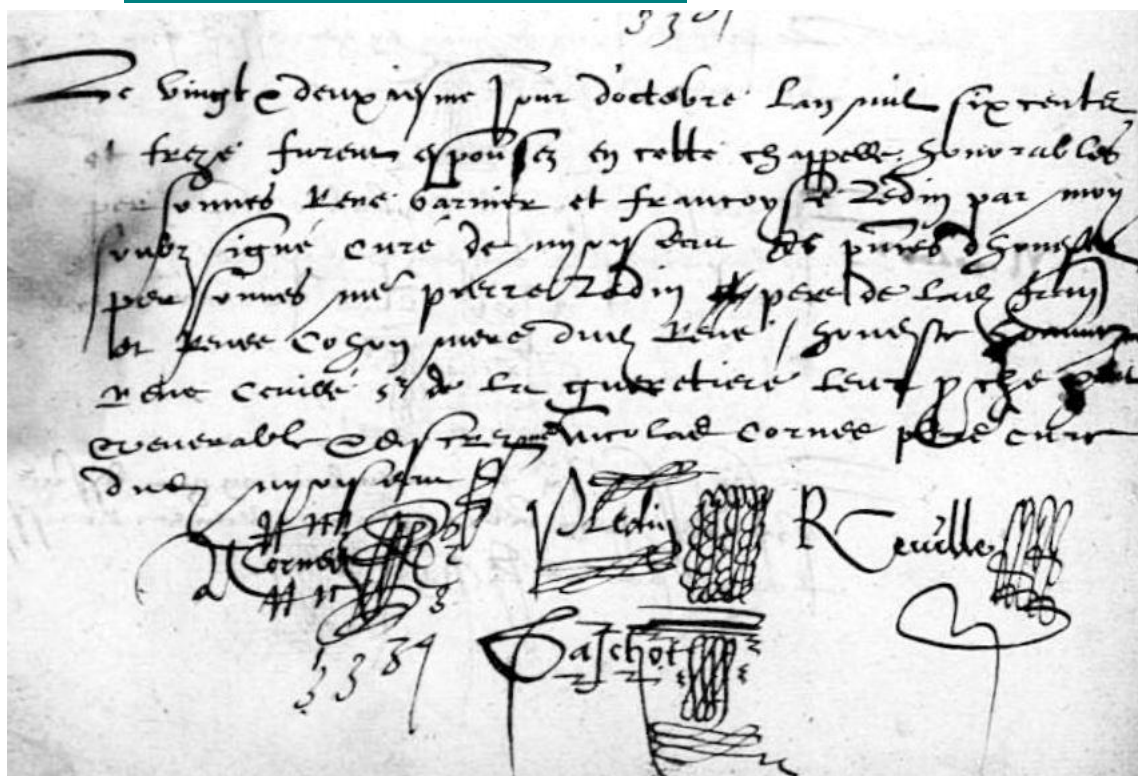 Le vingt & deuxiesme jour d'octobre l'an mil six centz
et treze furent espousez en cette chappelle honorables
personnes Rene Garnier et Francoyse Ledin par moy
soubz signé curé de nyoyseau es pñces d'honestes
personnes me pierre Ledin pere de lad Fran
et Renee Cohon mere dud René honeste homme
René Cevillé sr de la gueretiere leur p che
venerable & discret Nicolas Cornee pbre curé
dud nyoyseau
Cornee
P Ledin
R Ceville
Gaschot